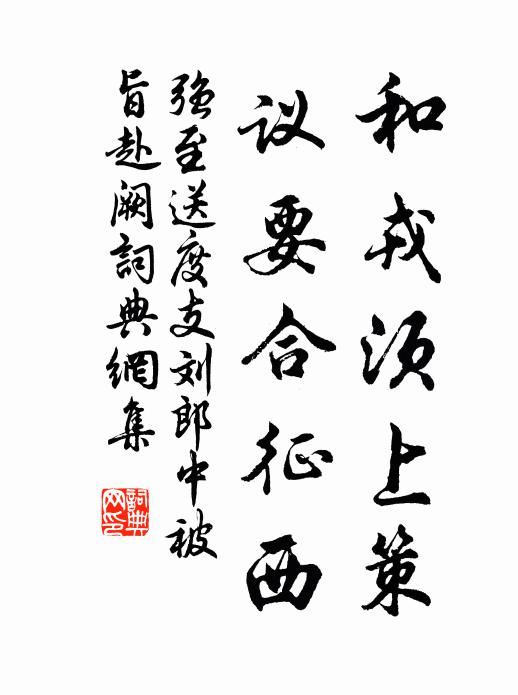 和戎须上策
议要合征西
强至送度支刘郎中被
旨赴阙詞典網集
詞典网印